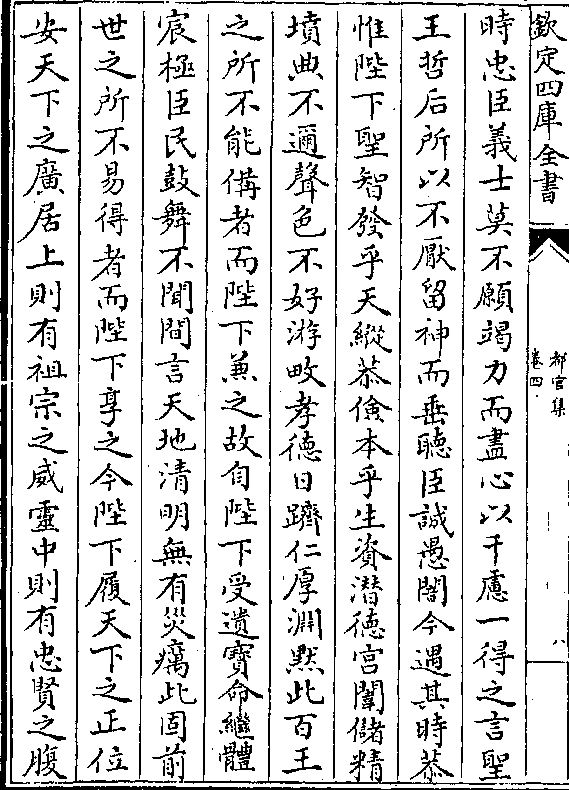 欽定四庫全書
都官集
卷四
八
時忠臣義士莫不願竭力而盡心以千慮一得之言聖
王哲后所以不厭留神而垂聽臣誠愚闇今遇其時恭
惟陛下聖智發乎天縱恭儉本乎生資潛德宮闈儲精
墳典不邇聲色不好游畋孝德日躋仁厚淵默此百王
之所不能備者而陛下兼之故自陛下受遺寶命繼體
宸極臣民鼓舞不聞間言天地清明無有災癘此固前
世之所不易得者而陛下享之今陛下履天下之正位
安天下之廣居上則有祖宗之威靈中則有忠賢之腹